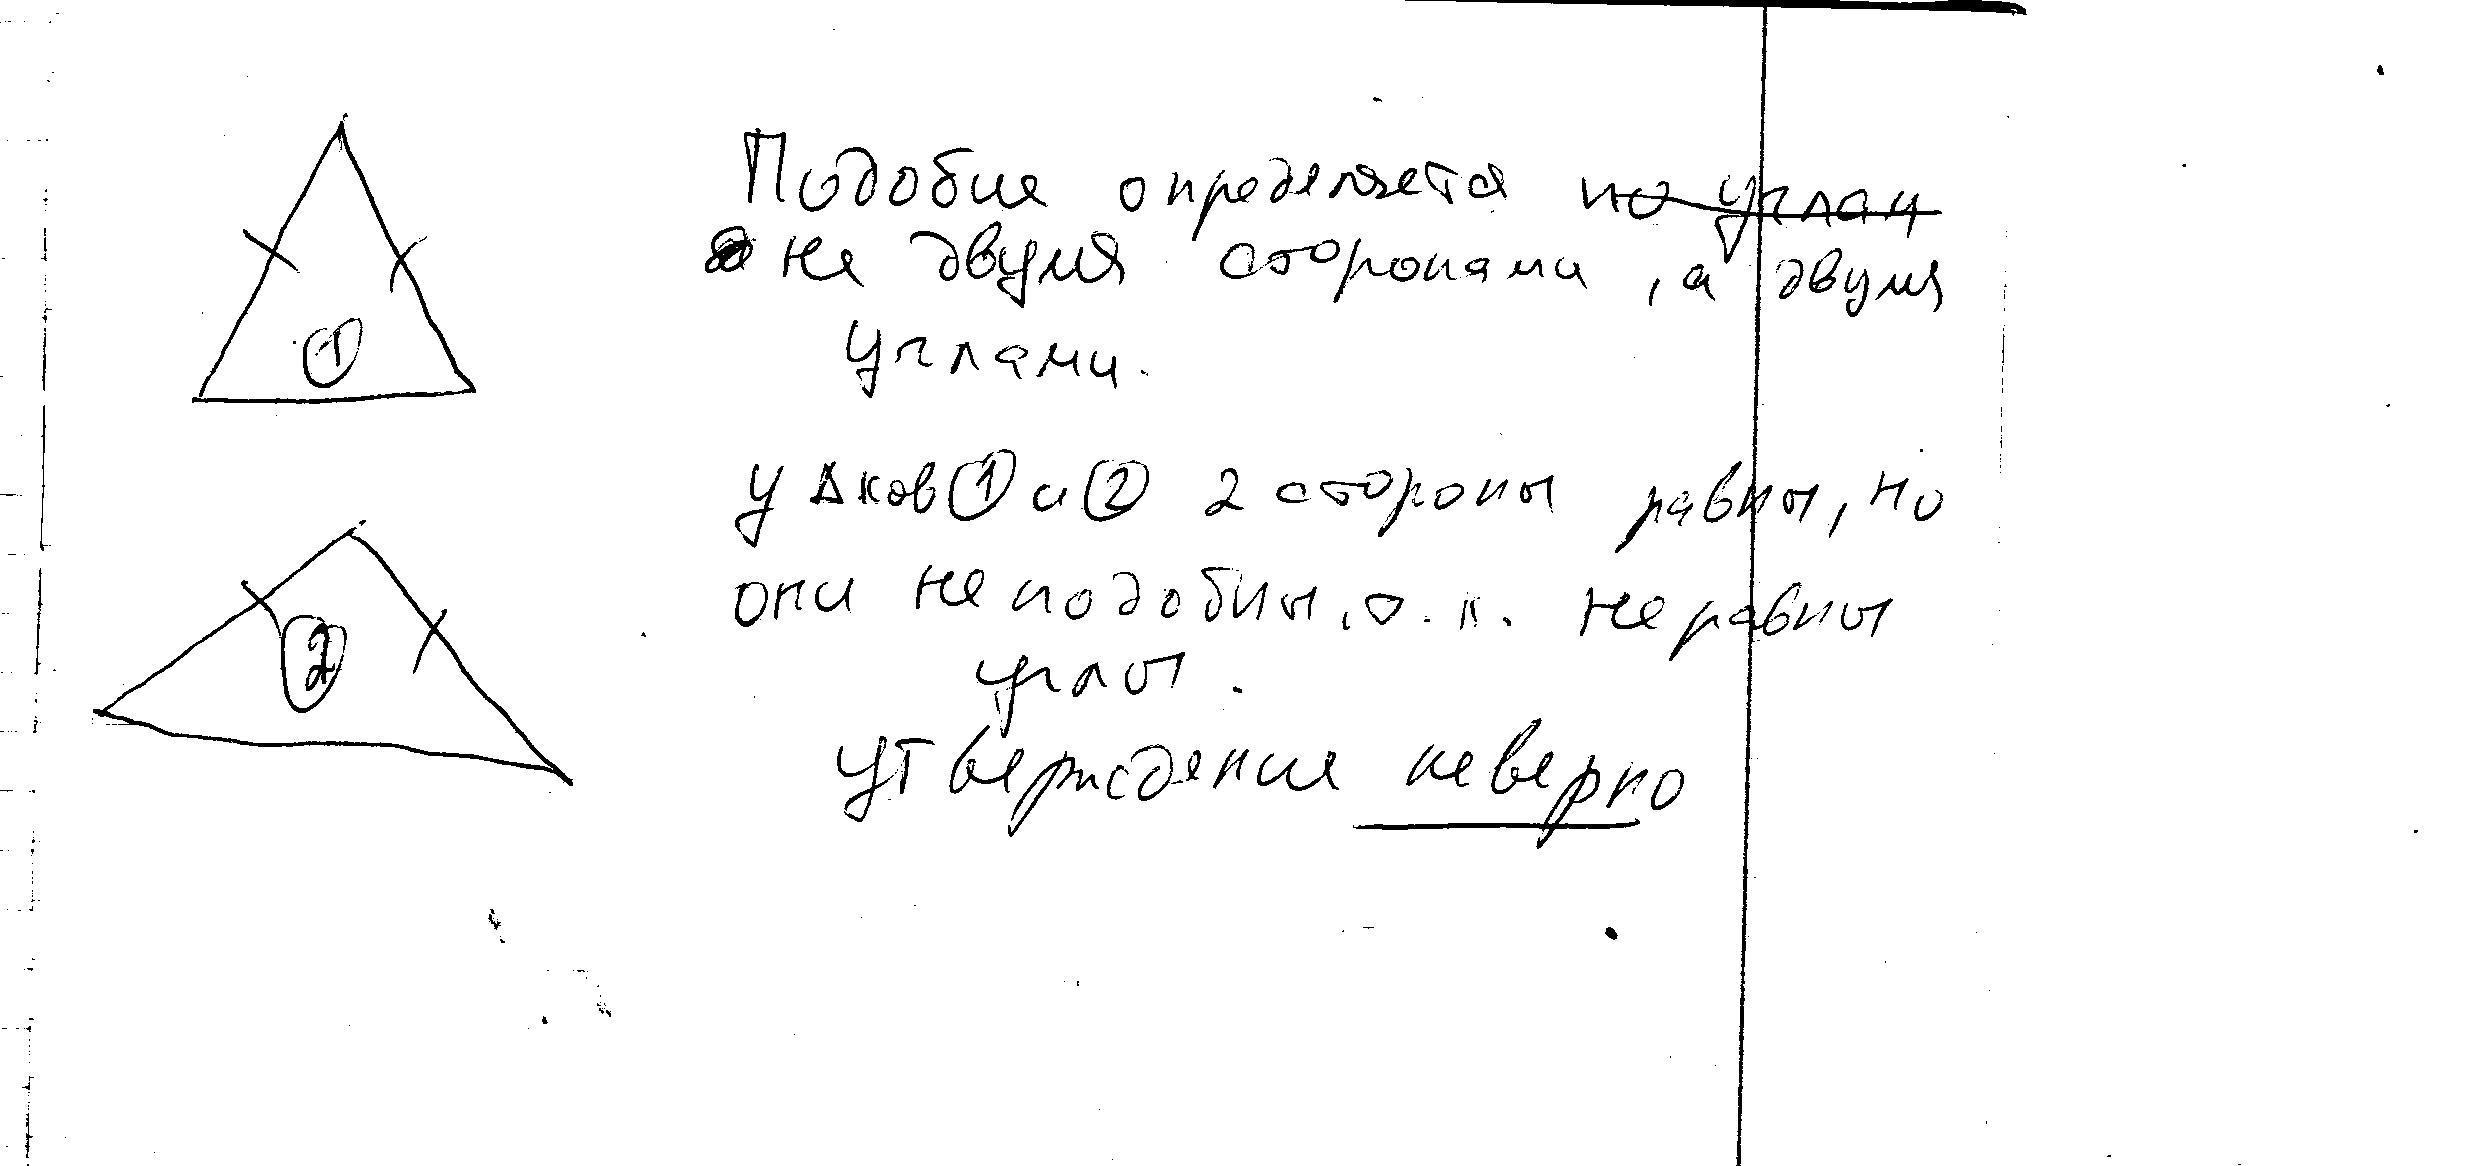 Подобие определяется по углам
не двумя сторонами, а двумя
углами.
У Δков ① и ② 2 стороны равны, но
они не подобны, т.к. не равны
углы.
утверждение неверно
①
②